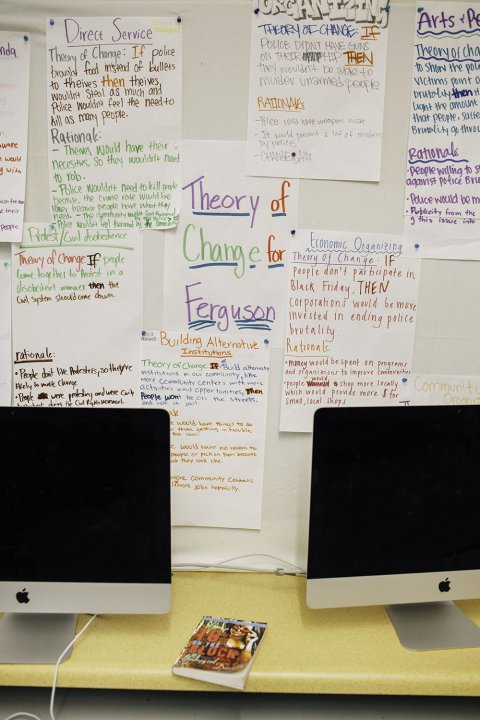 Direct Service
Theory of Change: If police
broung food instead of bullets
to theives then theives,
wouldn't steal as much and
Police wouldn't feel the need to
kill as many people.
Rationale:
- Theives would have their
necessitis, so they wouldn't need
to rob.
- Police wouldn't need to kill people
because, the crime rate would be
low because people have what they
need.
ORGANIZING
THEORY OF CHANGE: IF
POLICE DIDN'T HAVE GUNS
ON THEIR HIP THEN
they wouldn't be able to
murder unarmed people
RATIONALE:
- Police could have weapons
- It would prevent a lot of murders
by police
- CHANGE
Arts +
Theory of cha
to show the pol
Victims point o
brutality then
light the amount
that people, suffe
Brutality go throu
Rationale:
- People willing to s
against police Brut
- Police would be m
- Publicity from the
g this issue into
nda
Theory of
Change for
Ferguson
Protest/Civil disobedience
Theory of Change IF people
Come together to Protest in a
disobedient manner then the
Civil system should come down
rationale:
• People don't like Protesters, so they're
likely to make change.
Economic Organizing
Theory of Change: IF
people don't participate in
Black Friday, THEN
corporations would be more
invested in ending police
brutality.
Rationale
- money would be spent on programs
and organizations to improve communities
- people would shop more locally
which would provide more $ for
small, local shops
Building Alternative
Institutions
Theory of Change IF Build alternate
institutions in our community, like
more community centers with more
activities and opportunities, Then
People won't be on the streets,
and not in jail
would have things to do
than getting in trouble
would have no reason to
people or pick on them because
they look like.
more community centers
more jobs hopefully.
Community
ON THE
BLOCK